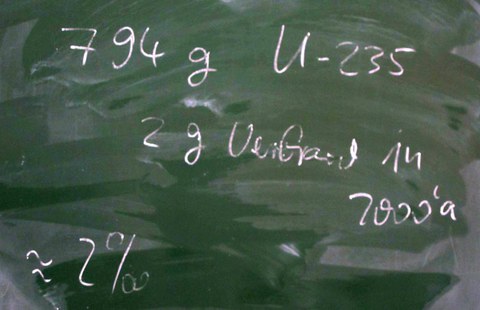 794 g U-235
2 g Verbrand in
7000 a
≈ 2‰